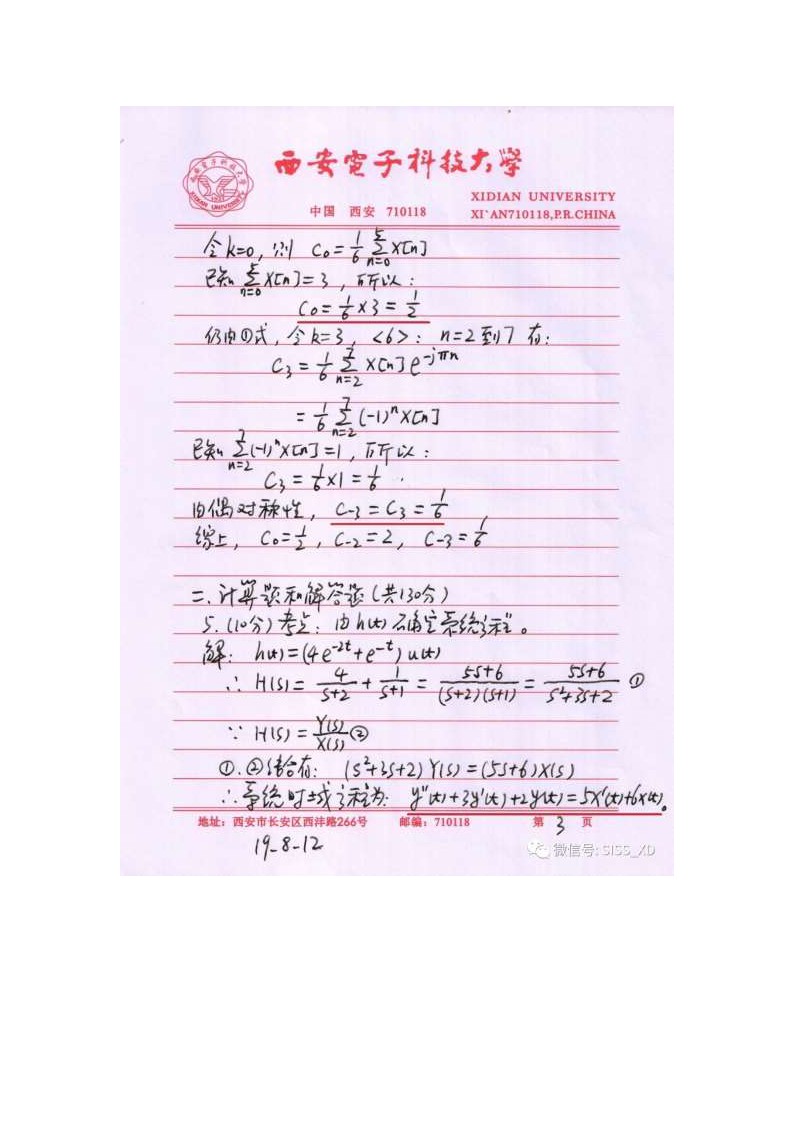 西安電子科技大學
XIDIAN UNIVERSITY
中国 西安 710118
XI'AN710118,P.R.CHINA
令k=0, 则 C₀=1/6 ∑_{n=0}^{5} x[n]
已知 ∑_{n=0}^{5} x[n]=3, 所以:
C₀=1/6×3=1/2
仍由①式, 令k=3, <6>: n=2到7 有:
C₃=1/6 ∑_{n=2}^{7} x[n]e^{-jπn}
=1/6 ∑_{n=2}^{7} (-1)ⁿx[n]
已知 ∑_{n=2}^{7} (-1)ⁿx[n]=1, 所以:
C₃=1/6×1=1/6.
由偶对称性, C₋₃=C₃=1/6
综上, C₀=1/2, C₋₂=2, C₋₃=1/6
二.计算题和解答题(共130分)
5.(10分)考点: 由h(t)确定系统方程。
解: h(t)=(4e^{-2t}+e^{-t})u(t)
∴ H(s)=4/(s+2)+1/(s+1)=(5s+6)/((s+2)(s+1))=(5s+6)/(s²+3s+2) ①
∵ H(s)=Y(s)/X(s) ②
①.②结合有: (s²+3s+2)Y(s)=(5s+6)X(s)
∴系统时域方程为: y″(t)+3y′(t)+2y(t)=5x′(t)+6x(t)。
地址: 西安市长安区西沣路266号 邮编: 710118 第 3 页
19-8-12
微信号: SISS_XD